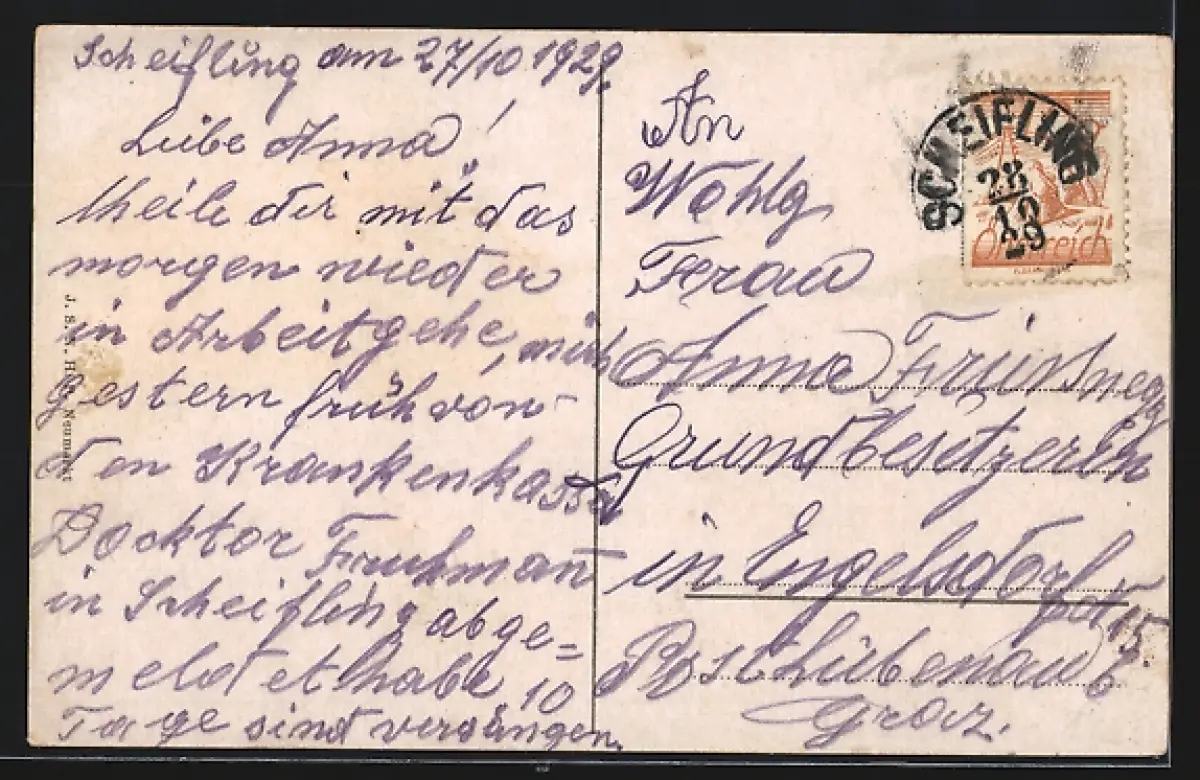 Scheifling am 27/10 1929.
Liebe Anna!
theile dir mit das
morgen wieder
in Arbeit gehe, mich
gestern früh von
den Krankenkassa
Docktor Fruhman
in Scheifling abge=
meldet habe 10
Tage sind vergangen.
An
Wohlg
Frau
Anna
Grundbesitzerin
in Engelsdorf
Post Liebenau b
Graz.
SCHEIFLING
28
10
29
Österreich
Neumarkt